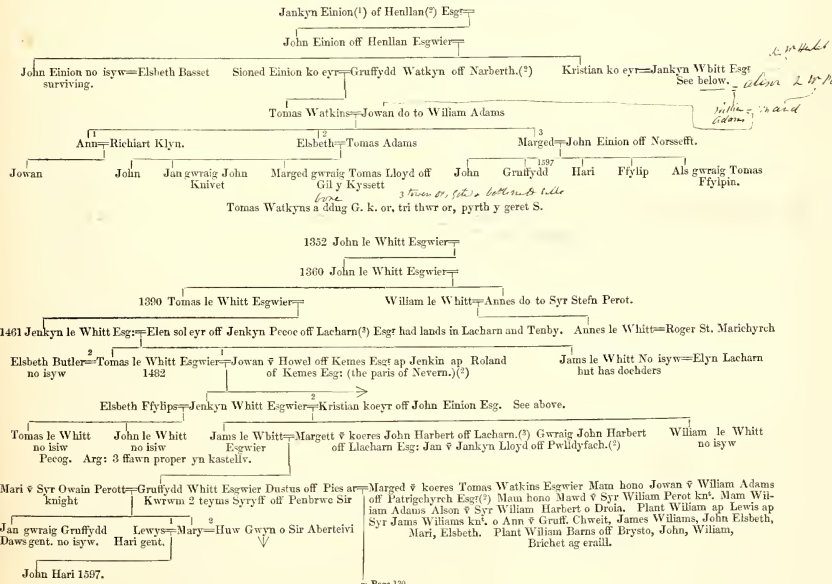 Jankyn Einion(¹) of Henllan(²) Esgr
John Einion off Henllan Esgwier
John Einion no isyw=Elsbeth Basset
surviving.
Sioned Einion ko eyr Gruffydd Watkyn off Narberth.(²)
Kristian ko eyr=Jankyn Whitt Esgr
See below.
Tomas Watkins Jowan do to Wiliam Adams
1
Ann Richiart Klyn.
2
Elsbeth Tomas Adams
3
Marged John Einion off Norssefft.
Jowan
John
Jan gwraig John
Knivet
Marged gwraig Tomas Lloyd off
Gil y Kyssett
John
1597
Gruffydd
Hari
Ffylip
Als gwraig Tomas
Ffylpin.
bore
Tomas Watkyns a ddug G. k. or, tri thwr or, pyrth y geret S.
1352 John le Whitt Esgwier
1360 John le Whitt Esgwier
1390 Tomas le Whitt Esgwier
Wiliam le Whitt Annes do to Syr Stefn Perot.
1461 Jenkyn le Whitt Esg: Elen sol eyr off Jenkyn Pecoc off Lacharn(³) Esgr had lands in Lacharn and Tenby.
Annes le Whitt=Roger St. Marichyrch
Elsbeth Butler 2 Tomas le Whitt Esgwier 1 Jowan ṽ Howel off Kemes Esgr ap Jenkin ap Roland
no isyw
1482
of Kemes Esg: (the paris of Nevern.)(²)
Jams le Whitt No isyw=Elyn Lacharn
but has dochders
Elsbeth Ffylips Jenkyn Whitt Esgwier 2 Kristian koeyr off John Einion Esg. See above.
Tomas le Whitt
no isiw
Pecog.
John le Whitt
no isiw
Arg: 3 ffawn proper yn kastellv.
Jams le Whitt Margett ṽ koeres John Harbert off Lacharn.(³) Gwraig John Harbert
Esgwier
off Llacharn Esg: Jan ṽ Jankyn Lloyd off Pwlldyfach.(²)
Wiliam le Whitt
no isyw
Mari ṽ Syr Owain Perott
knight
Gruffydd Whitt Esgwier Dustus off Pies ar
Kwrwm 2 teyms Syryff off Penbrwc Sir
Marged ṽ koeres Tomas Watkins Esgwier Mam hono Jowan ṽ Wiliam Adams
off Patrigchyrch Esgr(²) Mam hono Mawd ṽ Syr Wiliam Perot knt. Mam Wil-
iam Adams Alson ṽ Syr Wiliam Harbert o Droia. Plant Wiliam ap Lewis ap
Syr Jams Wiliams knt. o Ann ṽ Gruff. Chweit, James Wiliams, John Elsbeth,
Mari, Elsbeth. Plant Wiliam Barns off Brysto, John, Wiliam,
Brichet ag eraill.
Jan gwraig Gruffydd
Daws gent. no isyw.
Lewys 1 Mary 2 Huw Gwyn o Sir Aberteivi
Hari gent.
John Hari 1597.
Page 130